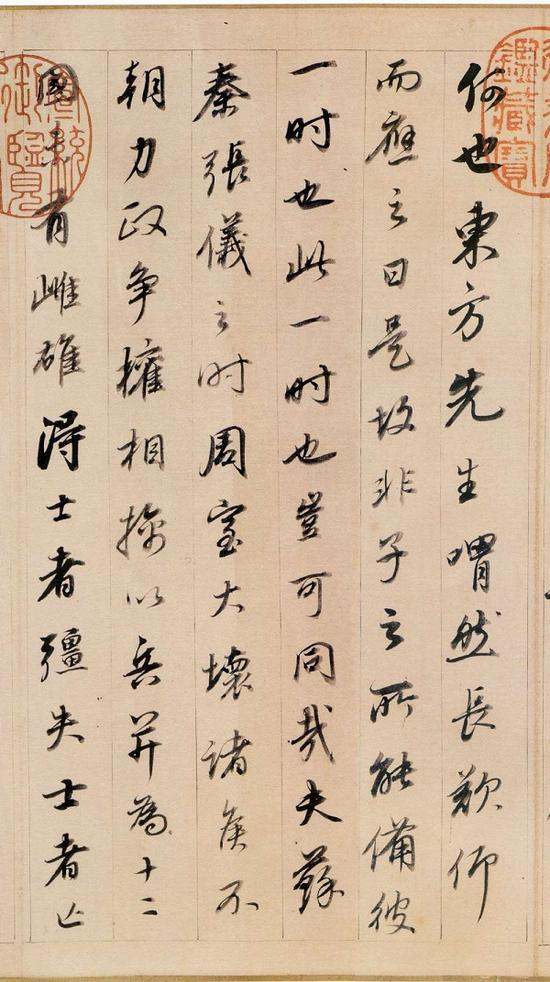 何也東方先生喟然長歎仰
而應之曰是故非子之所能備彼
一時也此一時也豈可同哉夫蘇
秦張儀之時周室大壞諸侯不
朝力政争權相擒以兵并為十二
國未有雌雄得士者彊失士者亡
鑑藏寶
宣統
御覽